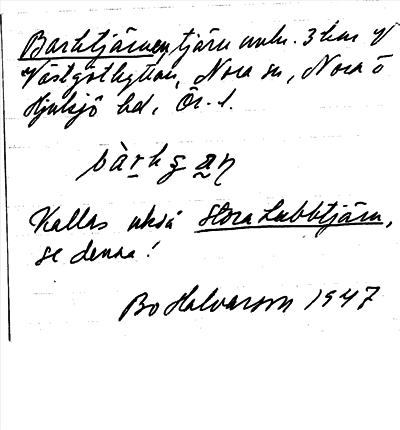 Barktjärnen, tjärn omkr. 3 km V
Västgöthyttan, Nora sn, Nora o
Hjulsjö bd, Ör. l.
bàrkʂan
Kallas också Stora Lubbtjärn,
se denna!
Bo Halvarson 1947